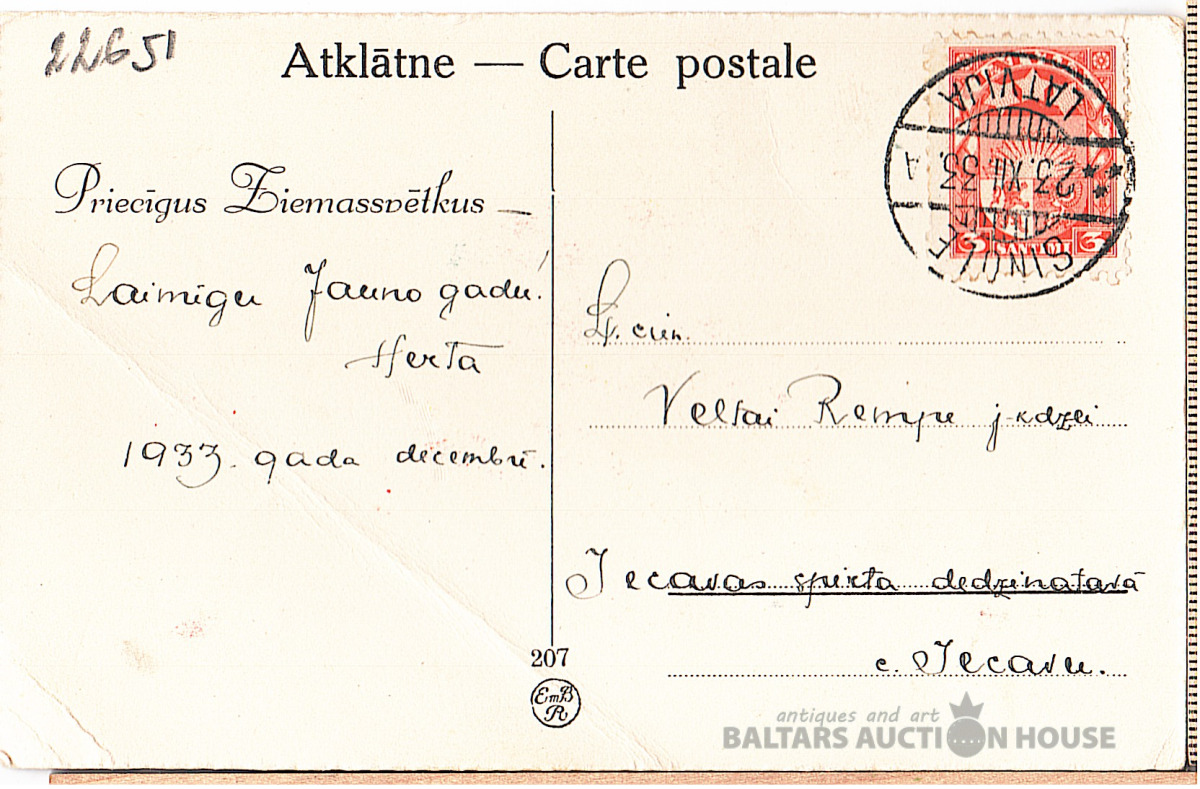 22651
Atklātne — Carte postale
Priecīgus Ziemassvētkus —
Laimīgu Jauno gadu!
Herta
1933. gada decembrī.
LATVIJA
23. XII. 33. A
3 SANTIMI 3
Ļ. cien.
Veltai Rempe j-kdzei
Iecavas spirta dedzinatavā
c. Iecavu.
207
EmB
R
antiques and art
BALTARS AUCTION HOUSE